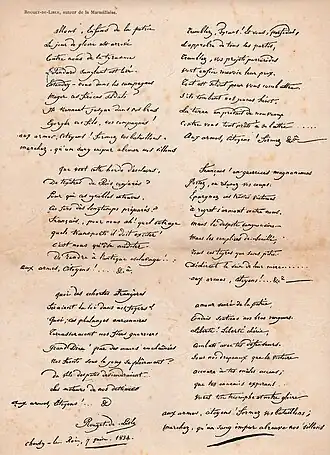 Rouget-de-Lisle, auteur de la Marseillaise.
allons, enfans de la patrie
Le jour de gloire est arrivé
Contre nous de la tyrannie
L'étendard sanglant est levé
Entendez-vous dans les campagnes
Mugir ces féroces soldats?
Ils viennent jusque dans vos bras
Egorger vos fils, vos compagnes!
aux armes, citoyens! Formez vos bataillons:
marchez, qu'un sang impur abreuve nos sillons
Que veut cette horde d'esclaves,
De traîtres, de Rois conjurés?
Pour qui ces ignobles entraves,
Ces fers dès longtemps préparés?
Français, pour nous, ah! quel outrage
quels transports il doit exciter!
c'est nous qu'on ose méditer
De rendre à l'antique esclavage!...
aux armes, Citoyens!... &a
quoi! des cohortes étrangères
Feraient la loi dans nos foyers!
quoi! ces phalanges mercenaires
Terrasseraient nos fiers guerriers
Grand Dieu! par des mains enchaînées
Nos fronts sous le joug se ploieraient?
De vils despotes deviendraient
Les maîtres de nos destinées
aux armes, Citoyens!... &
Rouget de Lisle
Choisy-le-Roi, 7
Tremblez, tyrans! Et vous, perfides,
L'opprobre de tous les partis,
Tremblez, vos projets parricides
Vont enfin recevoir leur prix.
Tout est soldat pour vous combattre
S'ils tombent nos jeunes héros,
La terre en produit de nouveaux
Contre vous tout prêts à se battre....
Aux armes, citoyens! Formez &a
Français! en guerriers magnanimes
Portez, ou retenez vos coups.
Epargnez ces tristes victimes
à regret s'armant contre nous.
Mais les despotes sanguinaires
Mais les complices de Bouillé,
Tous ces tigres qui sans pitié
Déchirent le sein de leur mère....
aux armes, Citoyens!... &a
amour sacré de la patrie,
Conduis, soutiens nos bras vengeurs
Liberté! Liberté chérie,
Combats avec tes défenseurs.
Sous nos drapeaux que la victoire
accoure à tes mâles accens;
que tes ennemis expirans
Voient ton triomphe et notre gloire
aux armes, citoyens! formez vos bataillons;
marchez, qu'un sang impur abreuve nos sillons